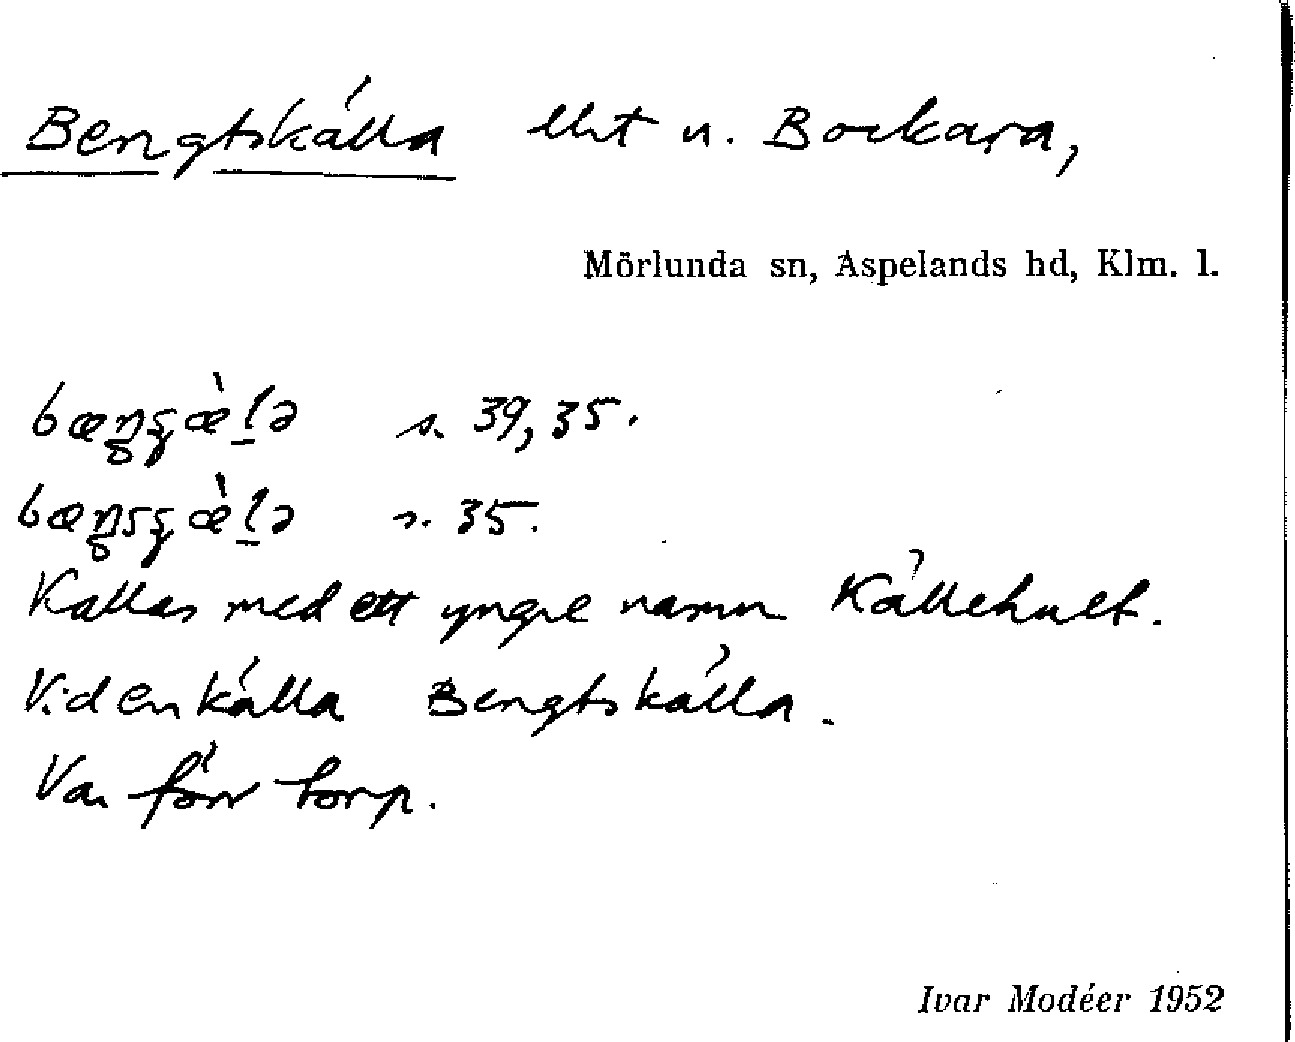 Bengtskälla lht u. Bockara,
Mörlunda sn, Aspelands hd, Klm. l.
s. 39, 35.
s. 35.
Kallas med ett yngre namn Källehult.
Vid en källa Bengtskälla.
Var förr torp.
Ivar Modéer 1952